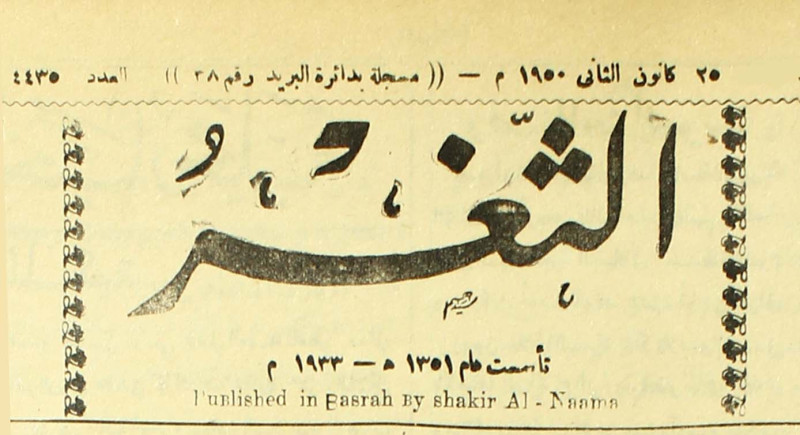 ٢٥ كانون الثانى ١٩٥٠ م — (( مسجلة بدائرة البريد رقم ٢٨ )) العدد ٤٤٣٥
الثغر
تأسست عام ١٣٥١ ه — ١٩٣٣ م
Published in Basrah By shakir Al - Naama